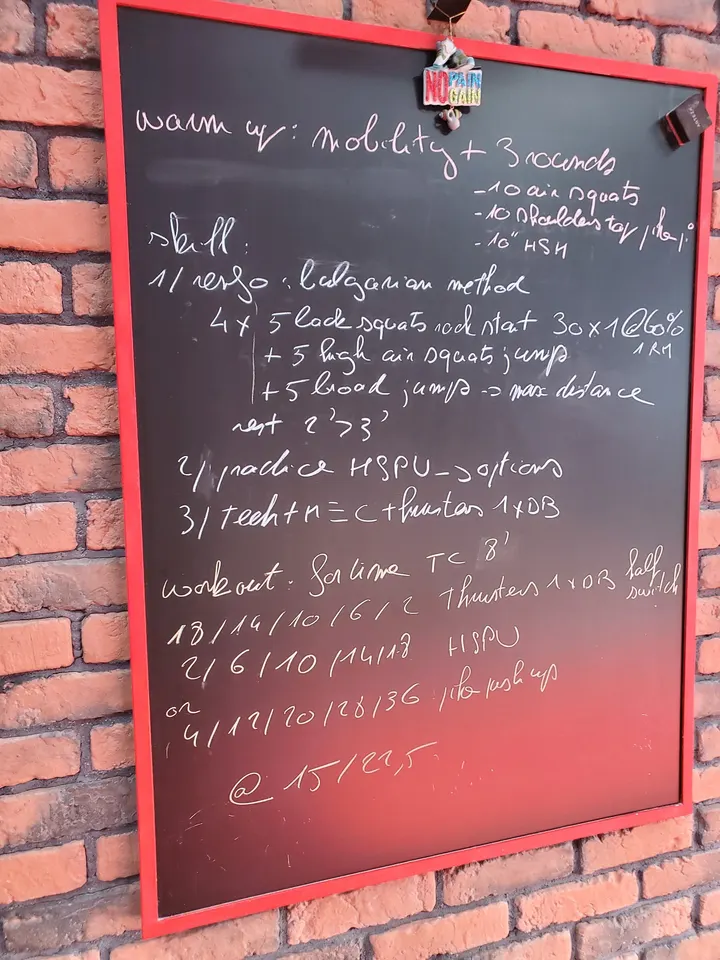 NO PAIN
GAIN
warm up: mobility + 3 rounds
- 10 air squats
- 10 shoulders tap
- 10" HSH
skill:
1/ : bulgarian method
4x 5 back squats start 30x1 @60%
1RM
+ 5 high air squats jump
+ 5 broad jump -> max distance
rest 2' > 3'
2/ practice HSPU -> options
3/ tech + M ≡ C thusters 1xDB
workout: for time TC 8'
18/14/10/6/2 Thusters 1xDB half
switch
2/6/10/14/18 HSPU
or
4/12/20/28/36 push up
@ 15/22,5